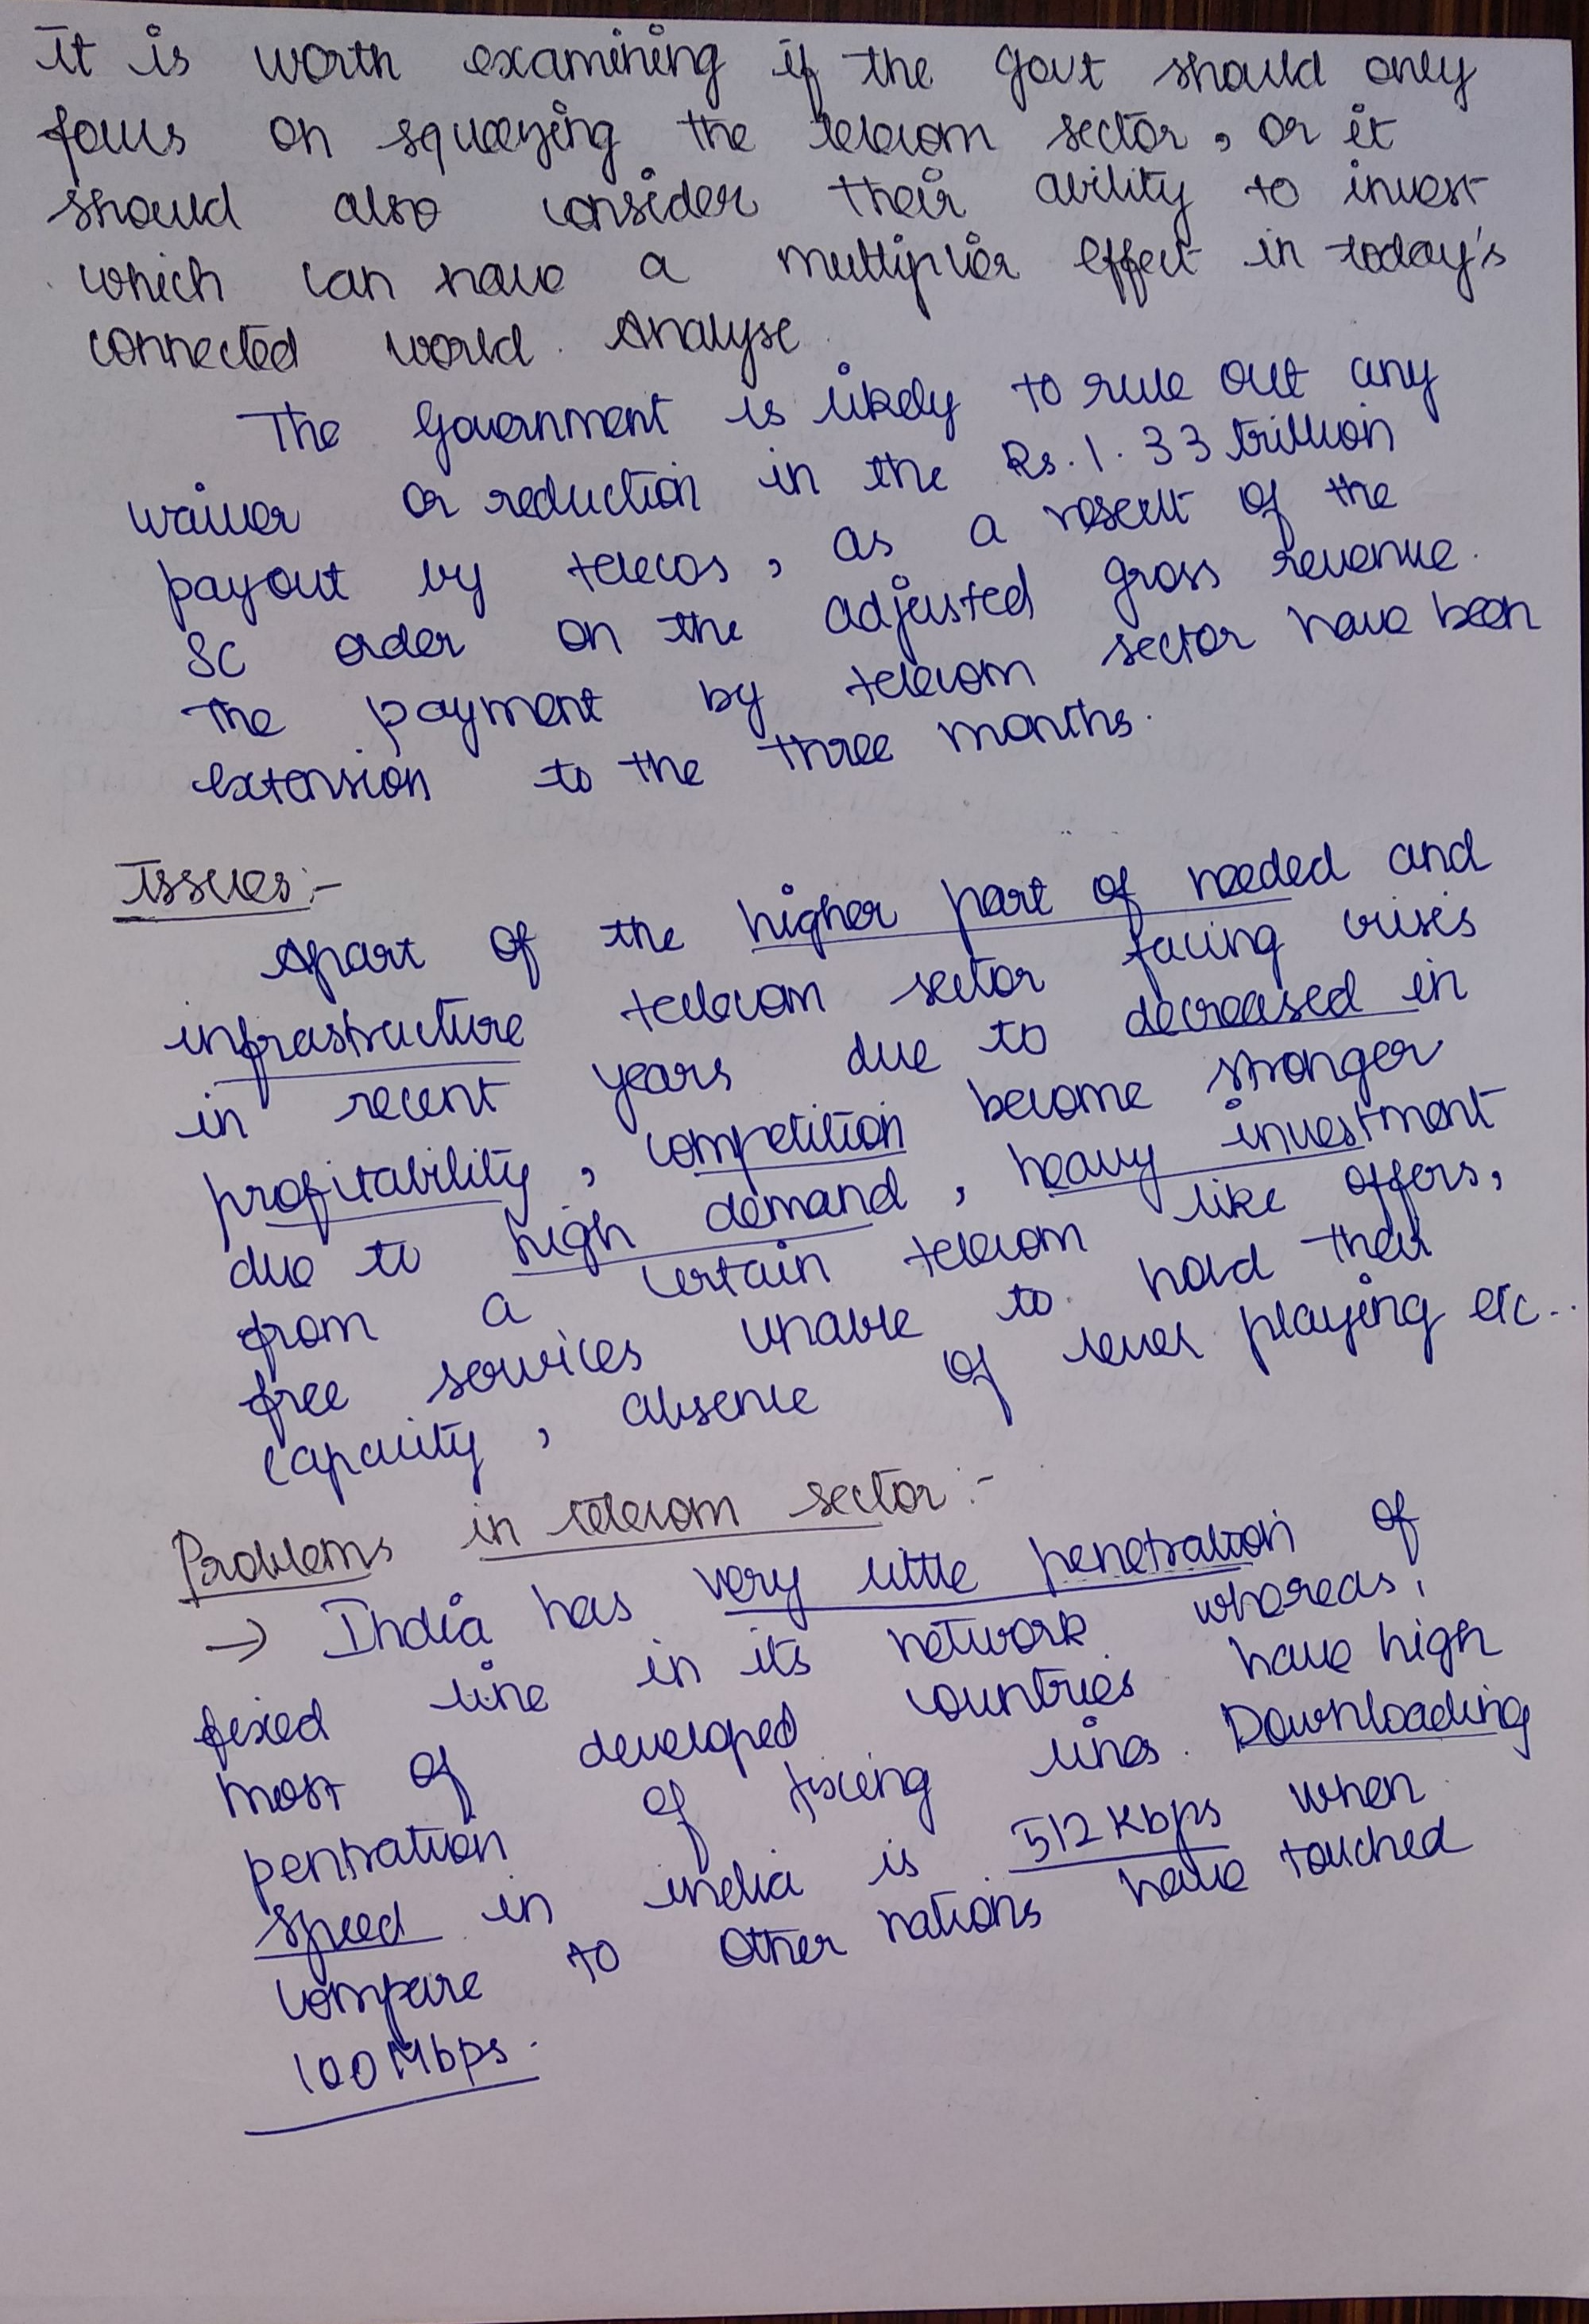 It is worth examining if the govt should only
focus on squeezing the telecom sector, or it
should also consider their ability to invest
which can have a multiplier effect in today's
connected world. Analyse
The Government is likely to rule out any
waiver or reduction in the Rs. 1.33 trillion
payout by telecos, as a result of the
SC order on the adjusted gross revenue.
The payment by telecom sector have been
extension to the three months.
Issues:-
Apart of the higher part of needed and
infrastructure telecom sector facing crises
in recent years due to decreased in
profitability, competition become stronger
due to high demand, heavy investment
from a certain telecom like offers,
free services unable to hold their
capacity, absence of level playing etc..
Problems in telecom sector:-
→ India has very little penetration of
fixed line in its network whereas,
most of developed countries have high
pentration of fixing lines. Downloading
speed in india is 512 Kbps when
compare to other nations have touched
100 Mbps.